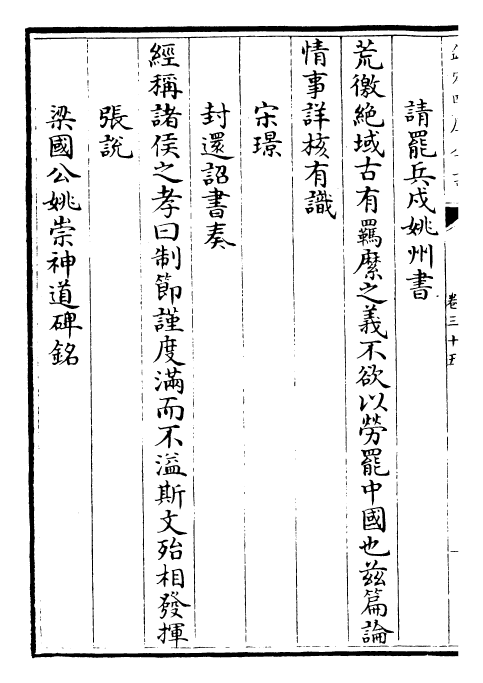 請罷兵戍姚州書
荒徼絶域古有羈縻之義不欲以勞罷中國也兹篇論
情事詳核有識
宋璟
封還詔書奏
經稱諸侯之孝曰制節謹度滿而不溢斯文殆相發揮
張說
梁國公姚崇神道碑銘
卷三十五